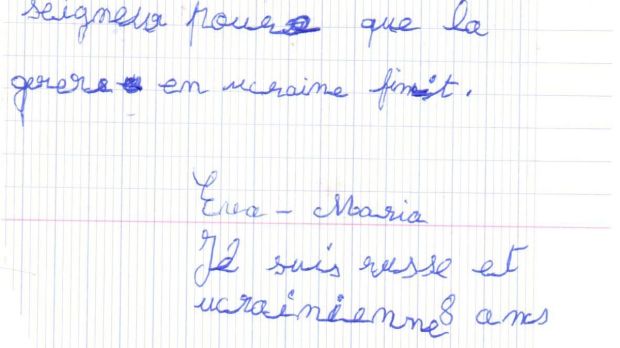 seigneur pour que la
gerere en ucraine finit.
Eva - Maria
Je suis russe et
ucrainienne 8 ans